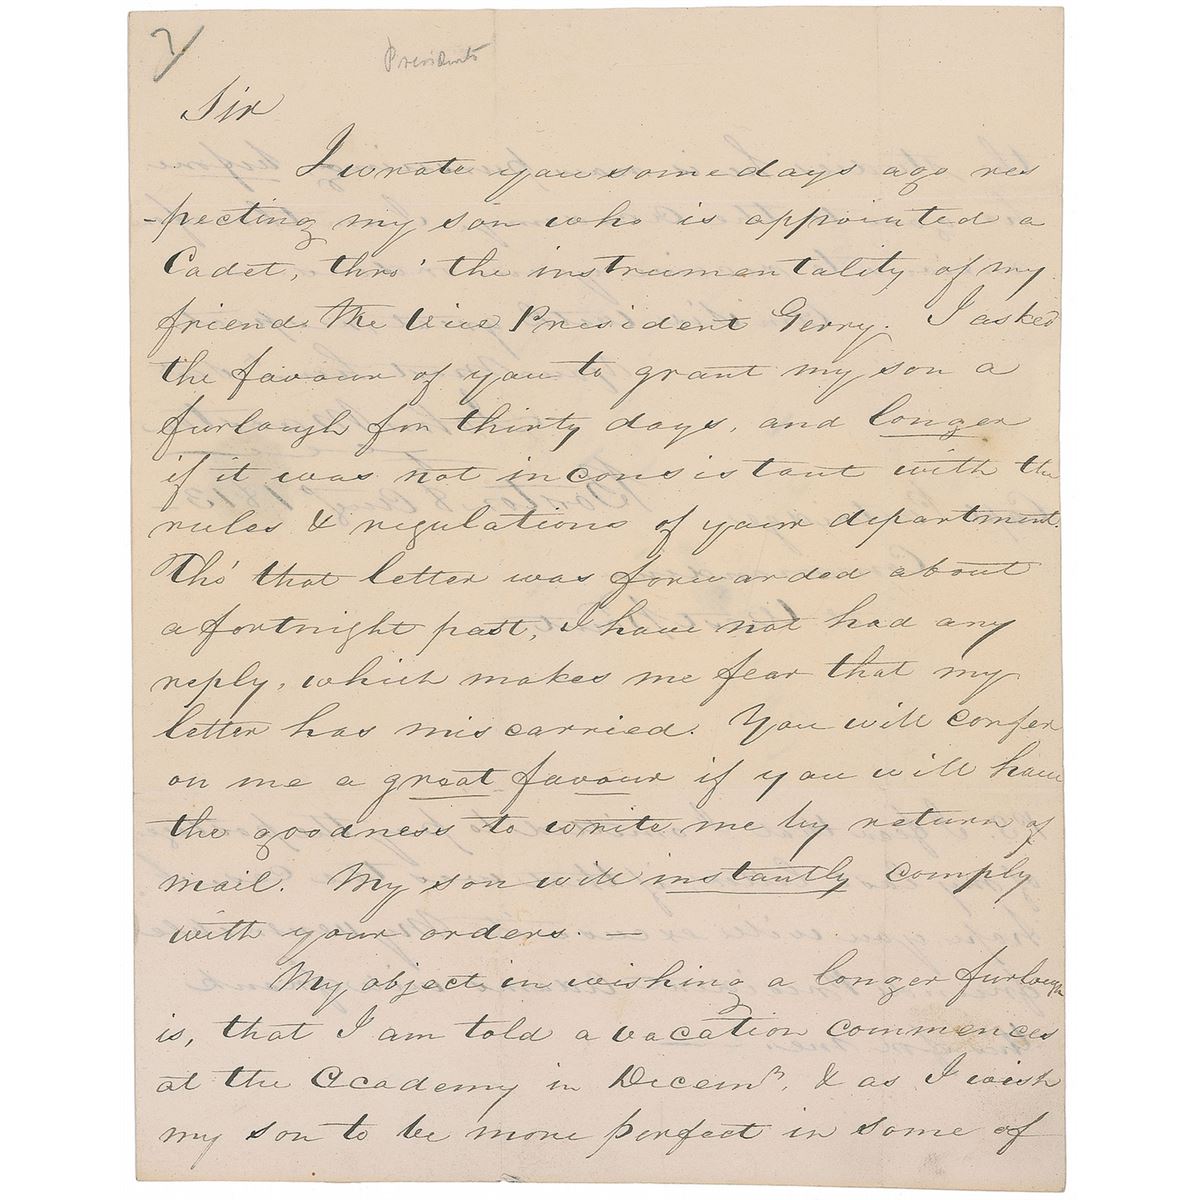 2/
Presidents
Sir
I wrote you some days ago res
-pecting my son who is appointed a
Cadet, thro' the instrumentality of my
friend the Vice President Gerry. I asked
the favour of you to grant my son a
furlough for thirty days, and longer
if it was not inconsistant with the
rules & regulations of your department.
Tho' that letter was forwarded about
a fortnight past, I have not had any
reply, which makes me fear that my
letter has miscarried. You will confer
on me a great favour if you will have
the goodness to write me by return of
mail. My son will instantly comply
with your orders. —
My object in wishing a longer furlough
is, that I am told a vacation commences
at the Academy in Decemr. & as I wish
my son to be more perfect in some of